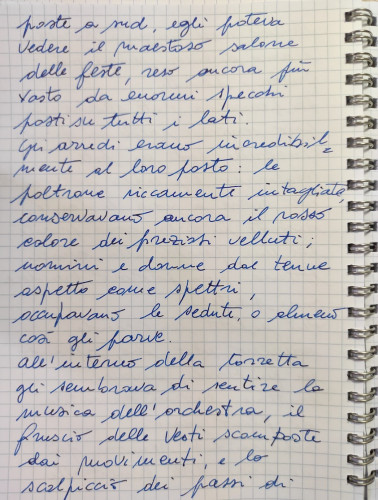 poste a sud, egli poteva
vedere il maestoso salone
delle feste, reso ancora più
vasto da enormi specchi
posti su tutti i lati.
Gli arredi erano incredibil=
mente al loro posto: le
poltrone riccamente intagliate,
conservavano ancora il rosso
colore dei preziosi velluti;
uomini e donne dal tenue
aspetto come spettri,
occupavano le sedute, o almeno
così gli parve.
All'interno della torretta
gli sembrava di sentire la
musica dell'orchestra, il
fruscio delle vesti scomposte
dai movimenti, e lo
scalpiccio dei passi di